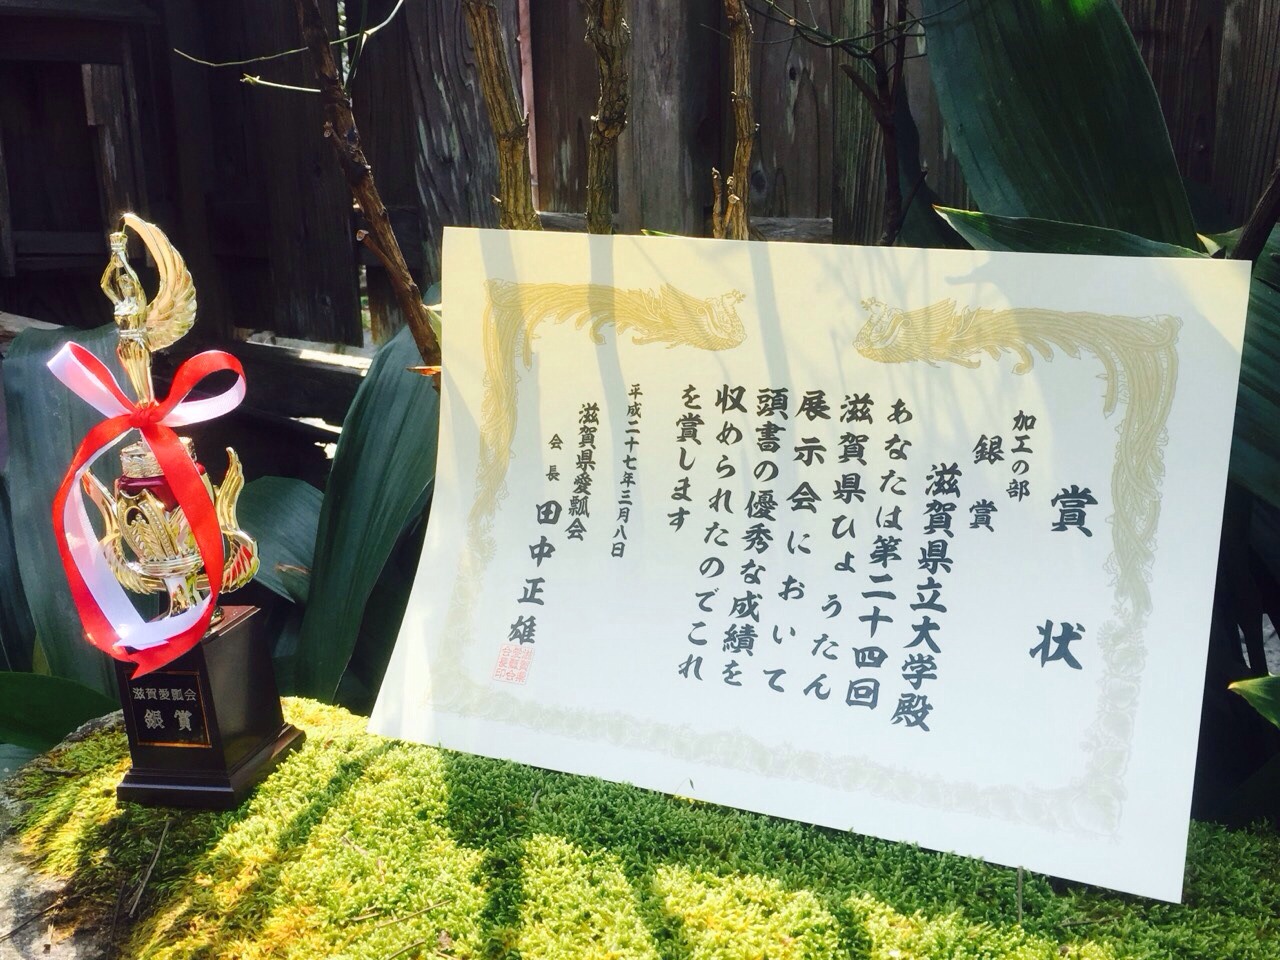 賞状
加工の部
銀賞
滋賀県立大学殿
あなたは第二十四回
滋賀県ひょうたん
展示会において
頭書の優秀な成績を
収められたのでこれ
を賞します
平成二十七年三月八日
滋賀県愛瓢会
会長 田中正雄
滋賀愛瓢会
銀賞